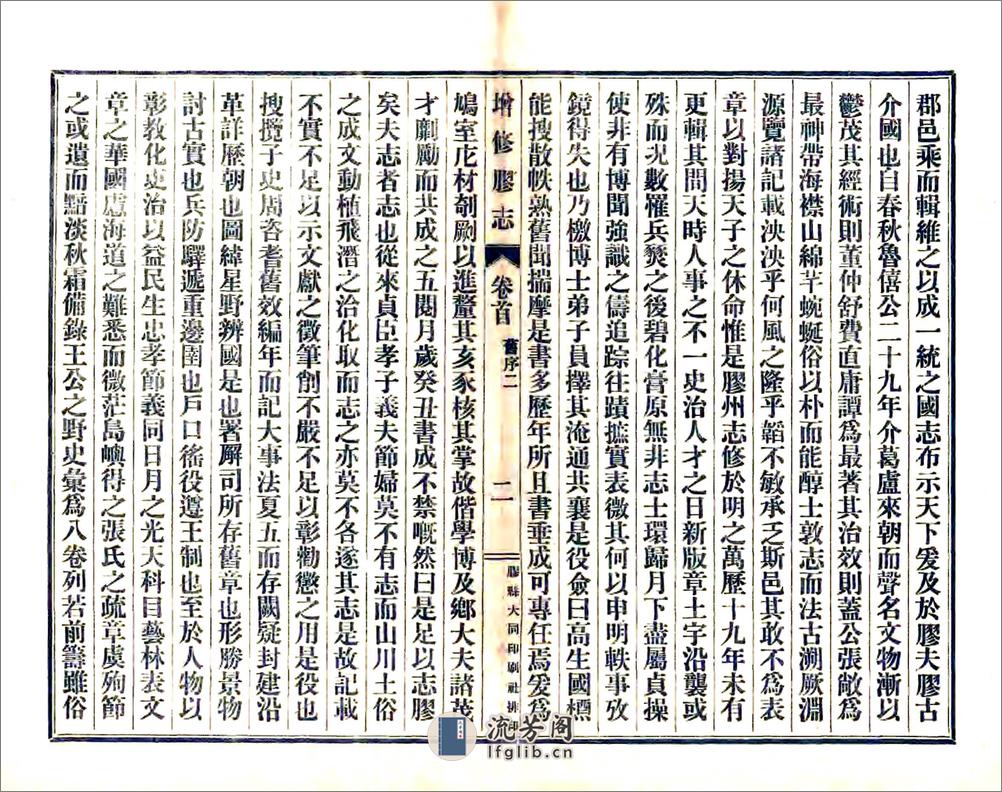 郡邑乘而輯維之以成一統之國志布示天下爰及於膠夫膠古
介國也自春秋魯僖公二十九年介葛盧來朝而聲名文物漸以
鬱茂其經術則董仲舒費直庸譚爲最著其治效則蓋公張敞爲
最神帶海襟山綿芊蜿蜒俗以朴而能醇士敦志而法古溯厥淵
源覽諸記載泱泱乎何風之隆乎韜不敏承乏斯邑其敢不爲表
章以對揚天子之休命惟是膠州志修於明之萬歷十九年未有
更輯其間天時人事之不一史治人才之日新版章土字沿襲或
殊而况數罹兵燹之後碧化膏原無非志士環歸月下盡屬貞操
使非有博聞強識之儔追踪往蹟摭實表微其何以申明軼事攷
鏡得失也乃檄博士弟子員擇其淹通共襄是役僉曰高生國楷
能搜散帙熟舊聞揣摩是書多歷年所且書垂成可專任焉爰爲
增修膠志 卷首 舊序二 二 膠縣大同印刷社排印
鳩室庀材剞劂以進釐其亥豕核其掌故偕學博及鄉大夫諸茂
才劘勵而共成之五閱月歲癸丑書成不禁嘅然曰是足以志膠
矣夫志者志也從來貞臣孝子義夫節婦莫不有志而山川土俗
之成文動植飛潛之治化取而志之亦莫不各遂其志是故記載
不實不足以示文獻之徵筆削不嚴不足以彰勸懲之用是役也
搜攬子史周咨耆舊效編年而記大事法夏五而存闕疑封建沿
革詳歷朝也圖緯星野辨國是也署廨司所存舊章也形勝景物
討古實也兵防驛遞重邊圉也戸口徭役遵王制也至於人物以
彰教化吏治以益民生忠孝節義同日月之光天科目藝林表文
章之華國慮海道之難悉而微茫島嶼得之張氏之疏章虞殉節
之或遺而黯淡秋霜備錄王公之野史彙爲八卷列若前籌雖俗
流芳阁
lfglib.cn